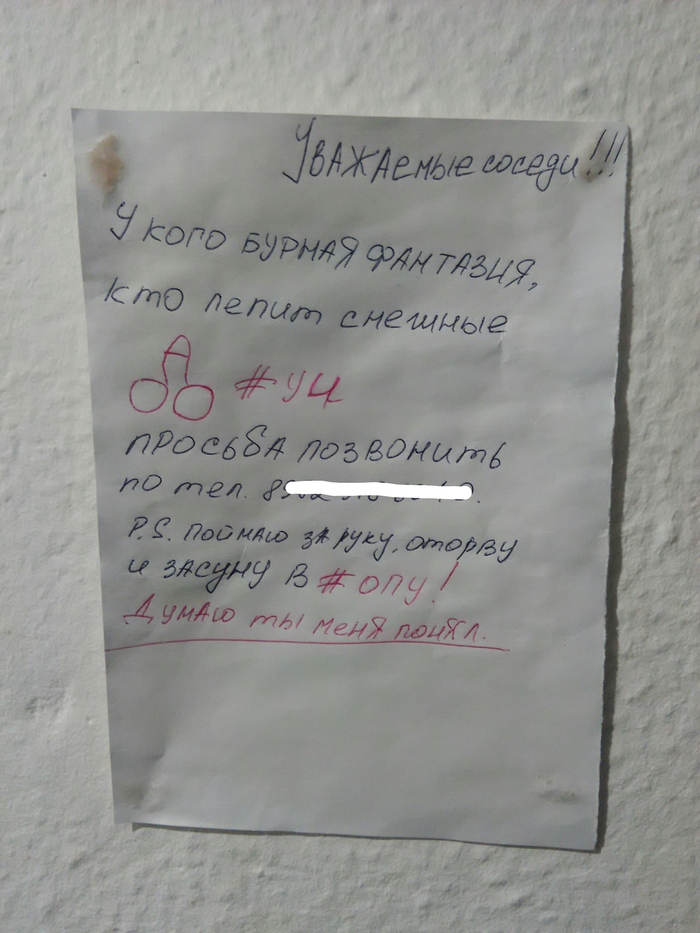 Уважаемые соседи!!!
У кого бурная фантазия,
кто лепит смешные
#уц
просьба позвонить
по тел.
P.S. поймаю за руку, оторву
и засуну в #опу!
Думаю ты меня понял.